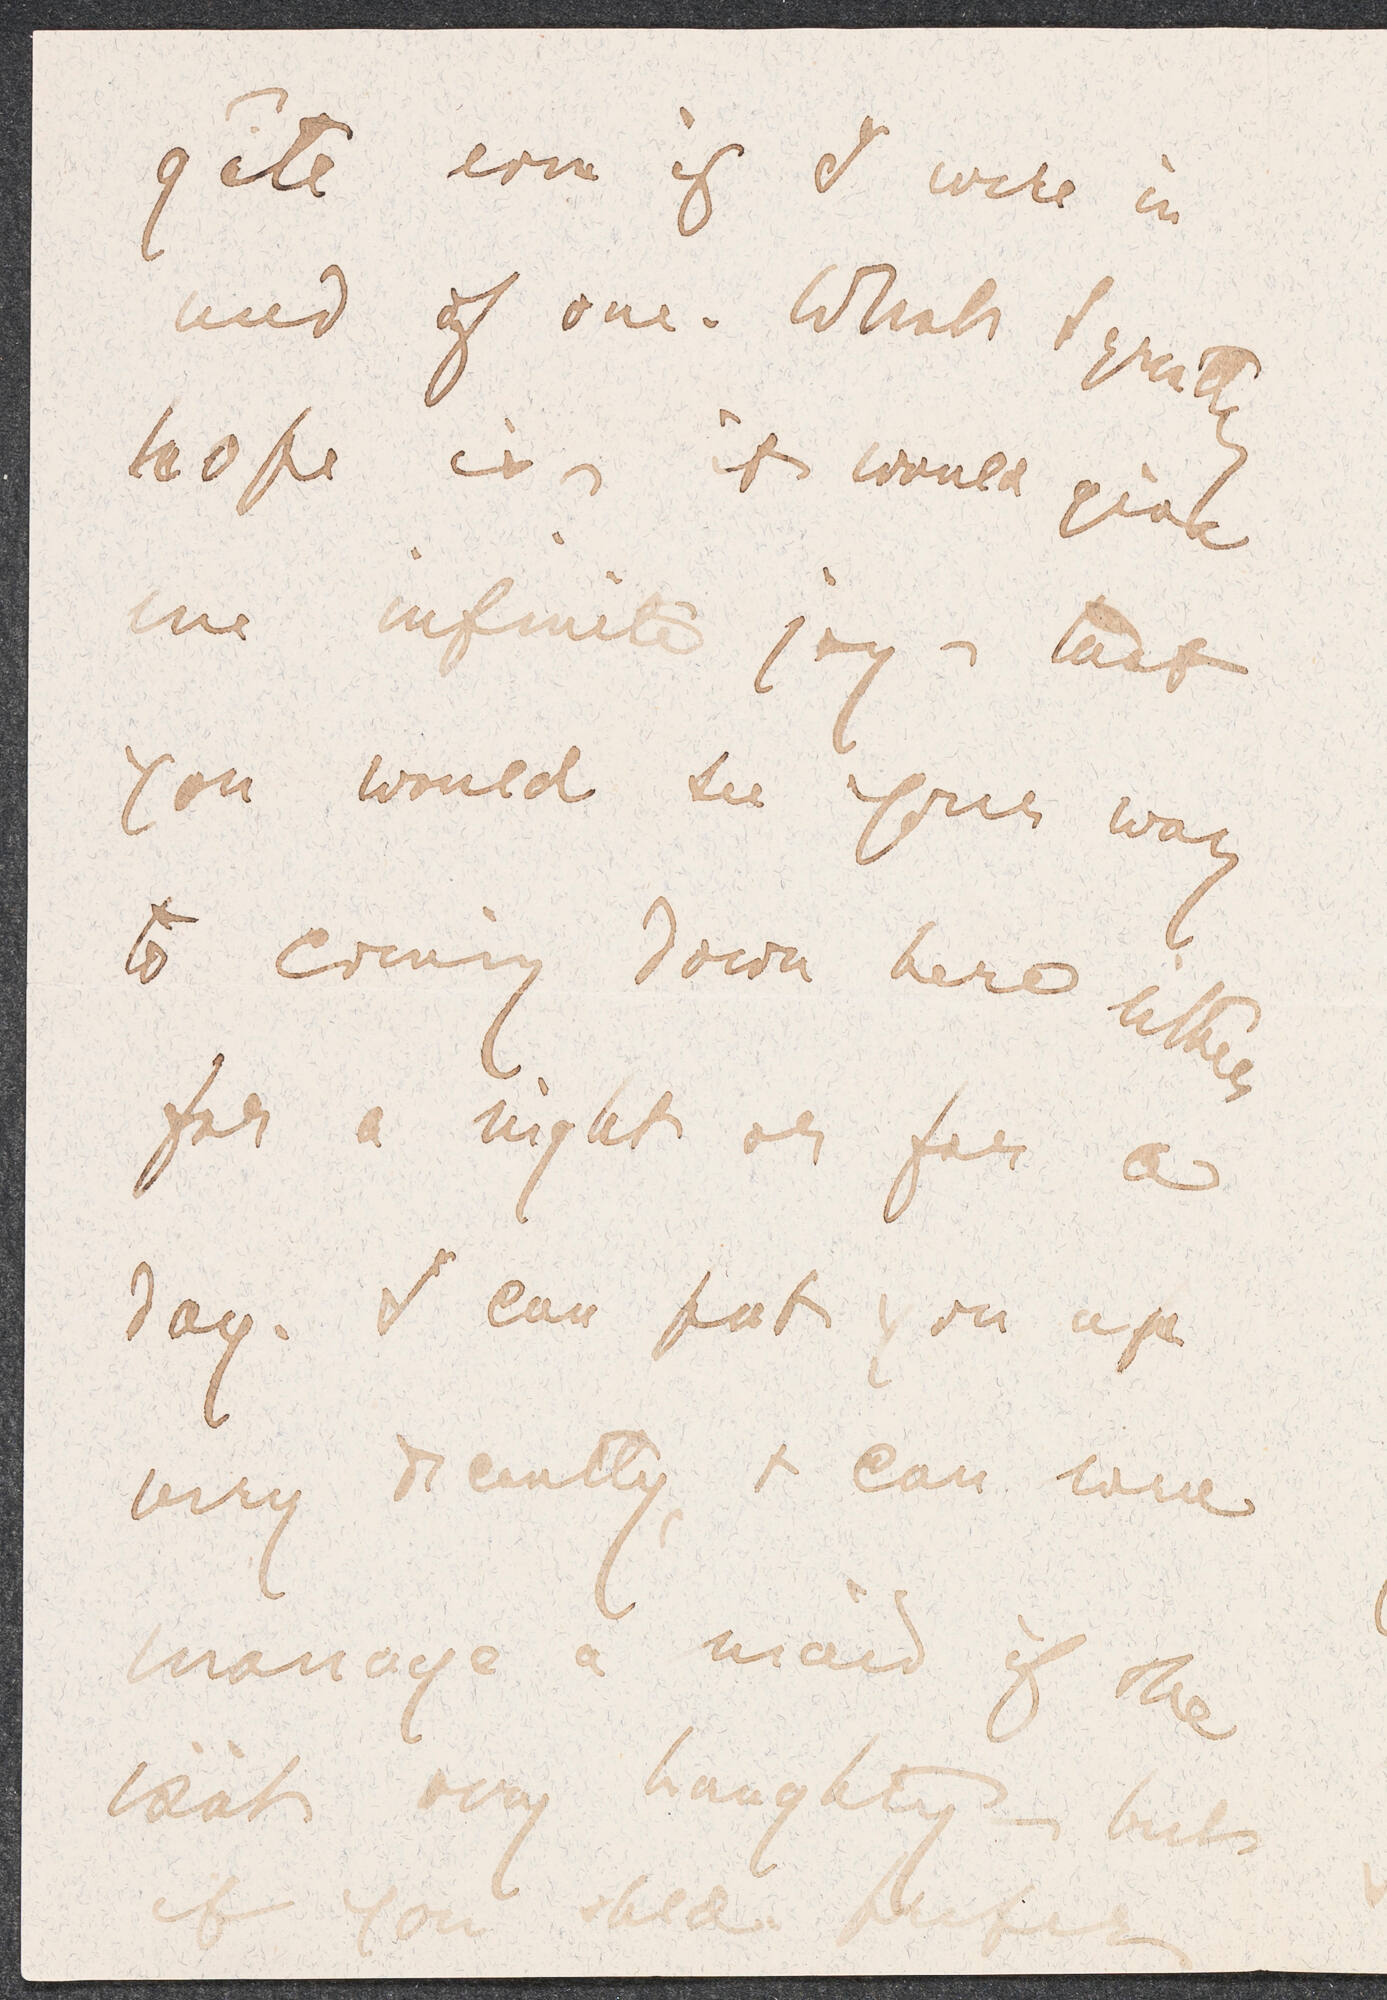 gîte even if I were in
need of one. What I greatly
hope is – it would give
me infinite joy – that
you would see your way
to coming down here either
for a night or for a
day. I can put you up
very decently, & can even
manage a maid if she
isn't very haughty – but
if you shld. prefer